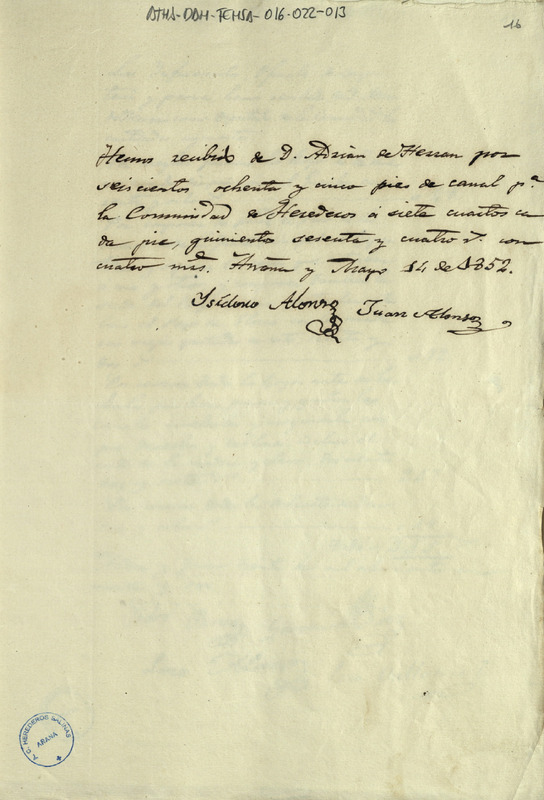 ATHA-DAH-FCHSA-016-022-013
16
Hemos recibido de D. Adrian de Herran por
seiscientos ochenta y cinco pies de canal p.ª
la Comunidad de Herederos á siete cuartos ca
da pie, quinientos sesenta y cuatro r.s con
cuatro mrs. Añana y Mayo 14 de 1852.
Isidoro Alonso
Juan Alonso
A.C. HEREDEROS SALINAS
AÑANA